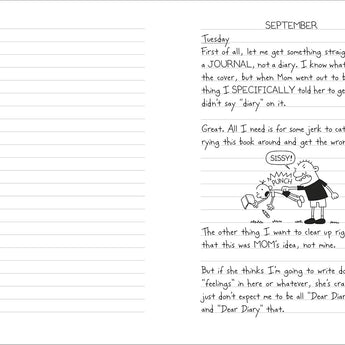 SEPTEMBER
Tuesday
First of all, let me get something
a JOURNAL, not a diary. I know what
the cover, but when Mom went out to
thing I SPECIFICALLY told her to
didn't say "diary" on it.
Great. All I need is for some jerk to
this book around and get the
SISSY!
PUNCH
The other thing I want to clear up
that this was MOM's idea, not mine.
But if she thinks I'm going to write
"feelings" in here or whatever, she's
just don't expect me to be all "Dear
and "Dear Diary" that.